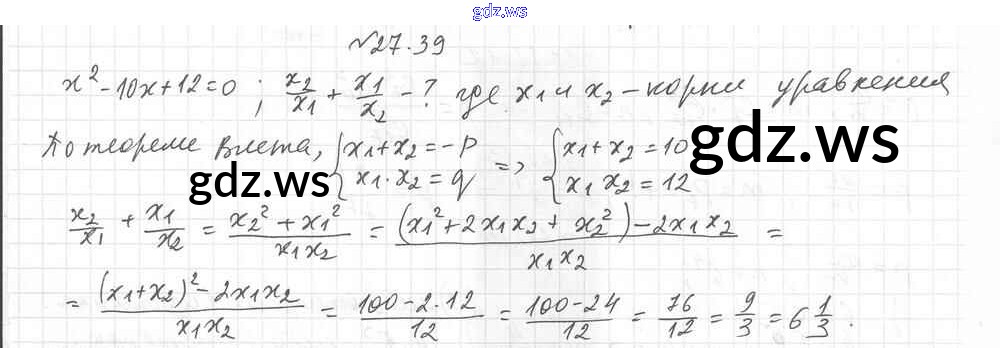 gdz.ws
№27.39
x² - 10x + 12 = 0 ; x₂/x₁ + x₁/x₂ - ? где x₁ и x₂ - корни уравнения
По теореме Виета, { x₁ + x₂ = -p ; x₁ · x₂ = q => { x₁ + x₂ = 10 ; x₁ x₂ = 12
gdz.ws gdz.ws
x₂/x₁ + x₁/x₂ = (x₂² + x₁²)/(x₁x₂) = ((x₁² + 2x₁x₂ + x₂²) - 2x₁x₂)/(x₁x₂) =
= ((x₁+x₂)² - 2x₁x₂)/(x₁x₂) = (100 - 2·12)/12 = (100 - 24)/12 = 76/12 = 9/3 = 6 1/3.